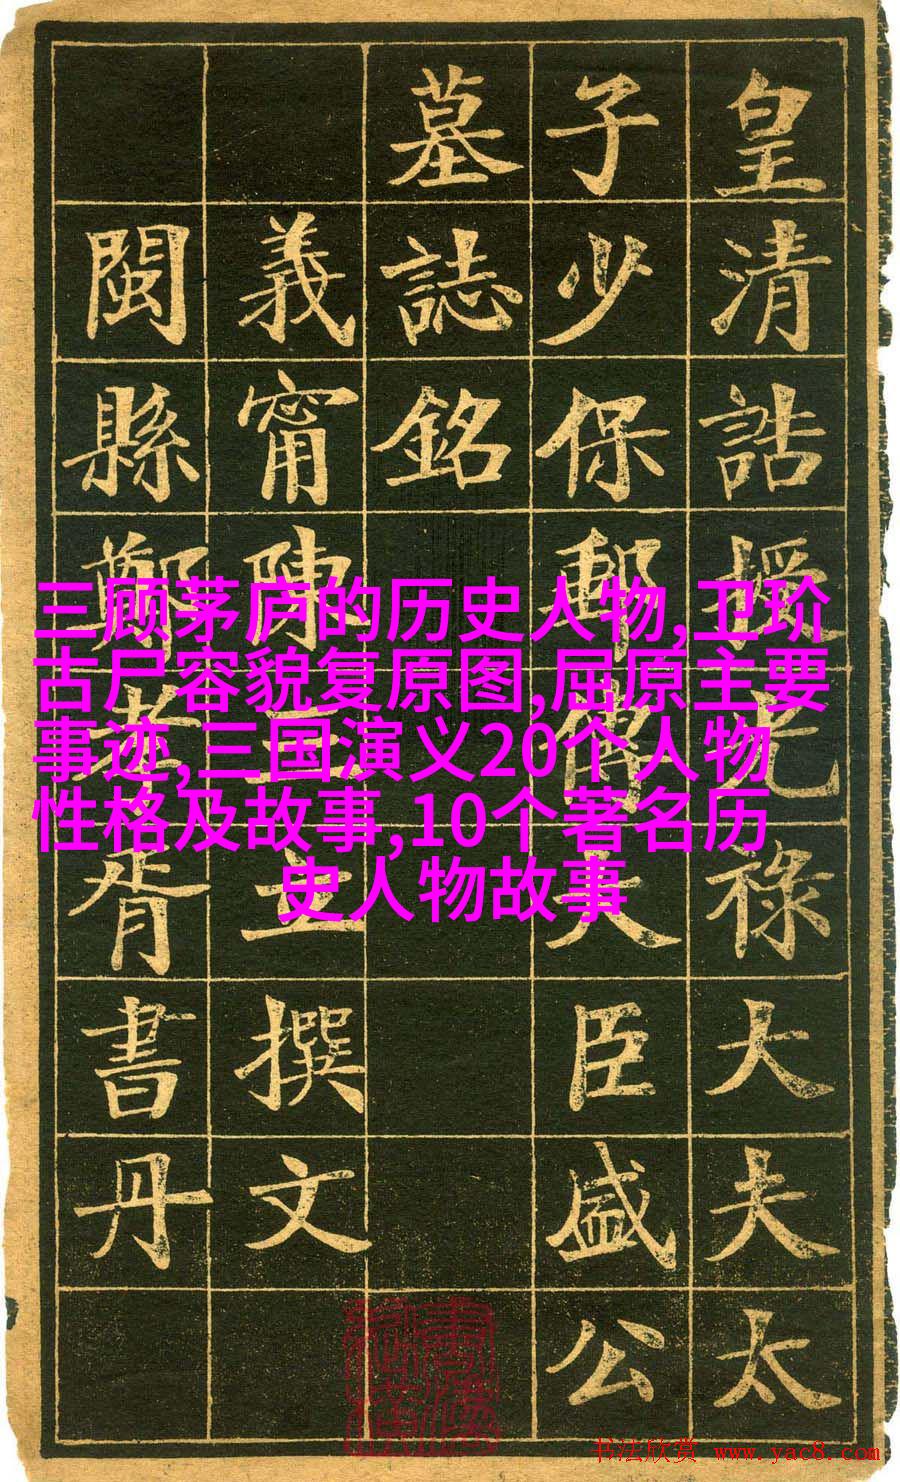 皇清誥授光祿大夫太
子少保郵傳大臣盛公
墓誌銘
義甯陳三立撰文
閩縣鄭孝胥書丹
三顾茅庐的历史人物,卫玠
古尸容貌复原图,屈原主要
事迹,三国演义20个人物
性格及故事,10个著名历
史人物故事
书法欣赏 www.yac8.com